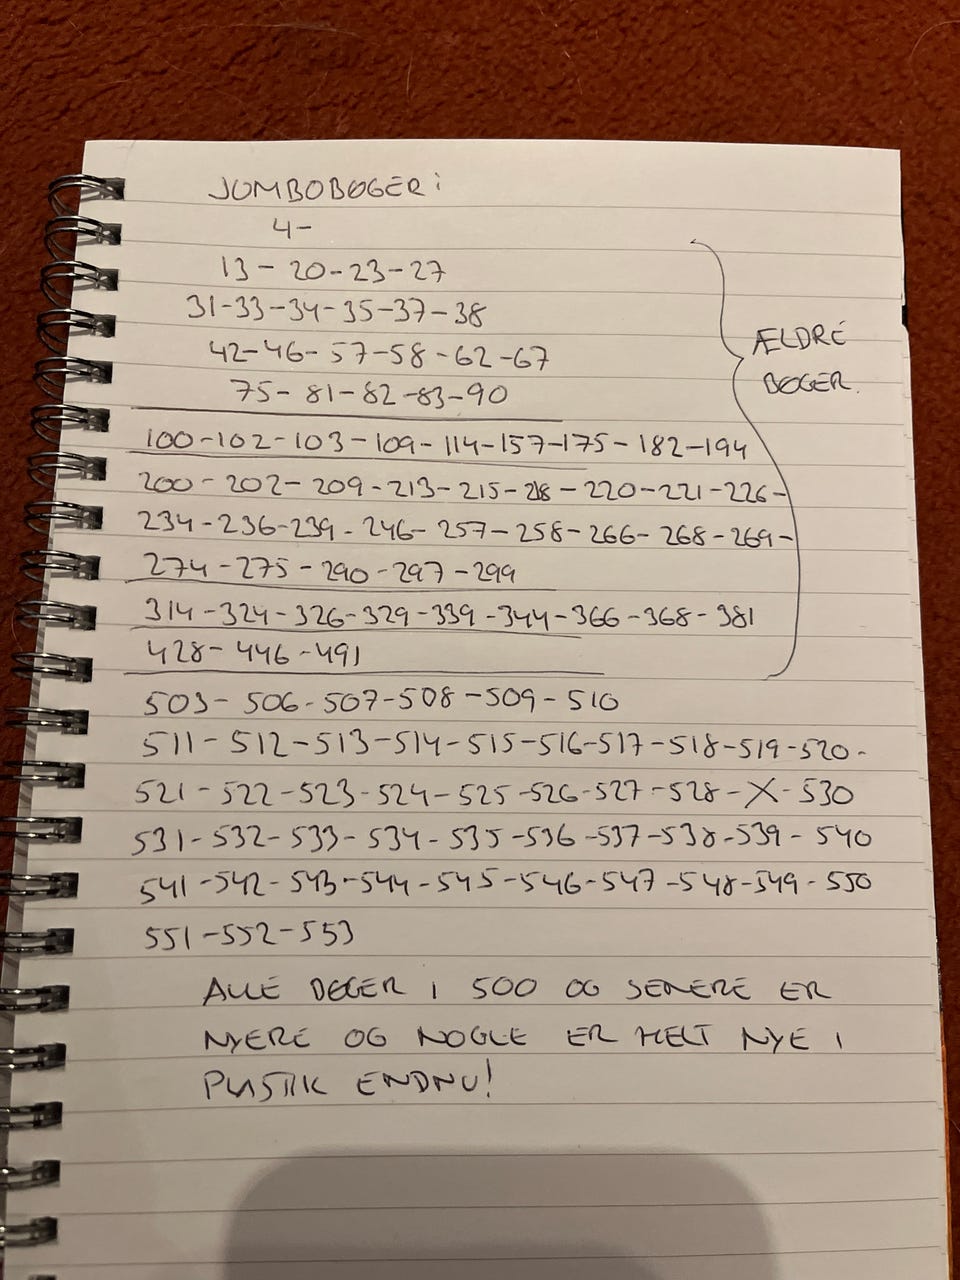 JUMBOBØGER:
4-
13-20-23-27
31-33-34-35-37-38
42-46-57-58-62-67
75-81-82-83-90
ÆLDRE
BØGER.
100-102-103-109-114-157-175-182-194
200-202-209-213-215-218-220-221-226-
234-236-239-246-257-258-266-268-269-
274-275-290-297-299
314-324-326-329-339-344-366-368-381
428-446-491
503-506-507-508-509-510
511-512-513-514-515-516-517-518-519-520-
521-522-523-524-525-526-527-528-X-530
531-532-533-534-535-536-537-538-539-540
541-542-543-544-545-546-547-548-549-550
551-552-553
ALLE BØGER I 500 OG SENERE ER
NYERE OG NOGLE ER HELT NYE I
PLASTIK ENDNU!